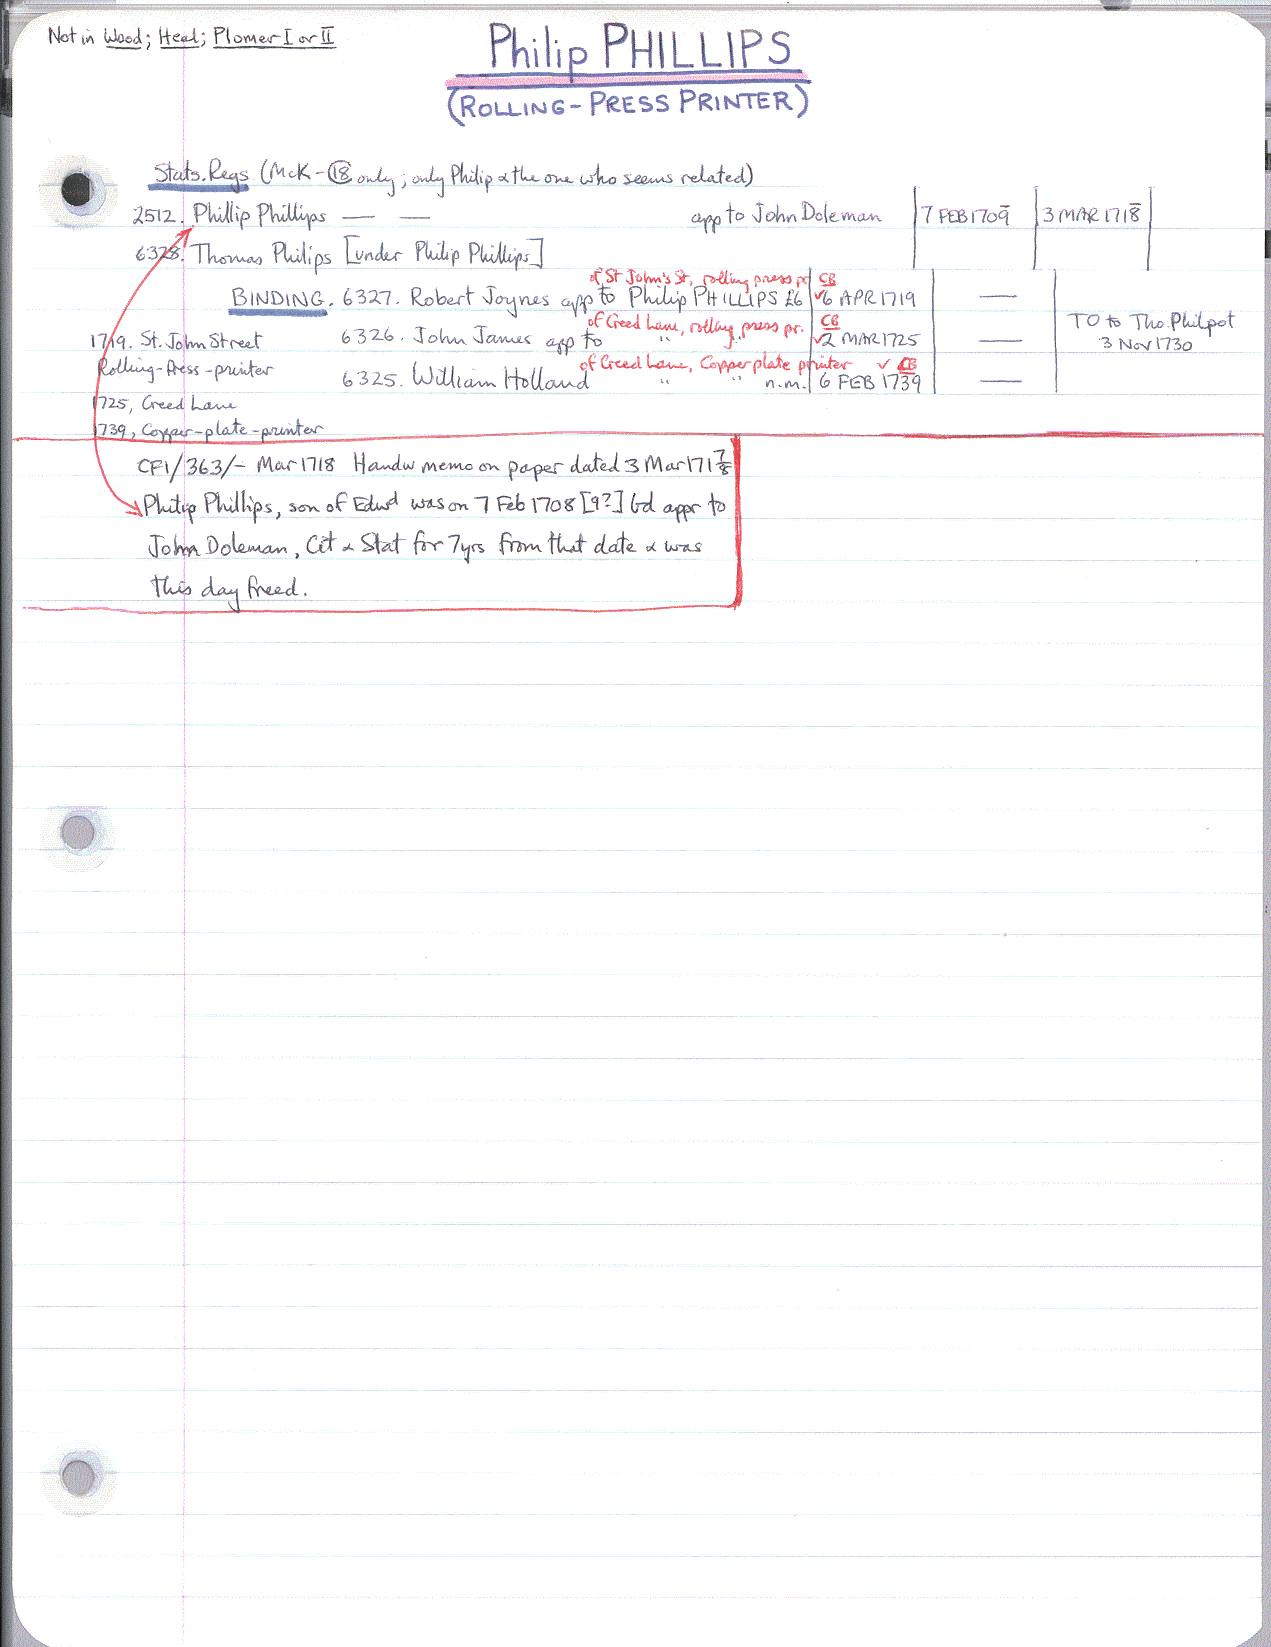 Not in Wood; Heal; Plomer I or II
Philip PHILLIPS
(ROLLING-PRESS PRINTER)
Stats. Regs (McK-18 only; only Philip & the one who seems related)
2512. Phillip Phillips — — app to John Doleman 7 FEB 1709 3 MAR 1718
6328. Thomas Philips [under Philip Phillips]
of St John's St, rolling press pr CB
BINDING. 6327. Robert Joynes app to Philip PHILLIPS £6 ✓6 APR 1719 —
of Creed Lane, rolling press pr. CB
6326. John James app to " " ✓2 MAR 1725 — TO to Tho. Philpot
3 Nov 1730
of Creed Lane, Copper plate printer ✓ CB
6325. William Holland " " n.m. 6 FEB 1739 —
1719. St. John Street
Rolling-Press-printer
1725, Creed Lane
1739, Copper-plate-printer
CF1/363/- Mar 1718 Handw memo on paper dated 3 Mar 1717/8
Philip Phillips, son of Edwd was on 7 Feb 1708 [9?] bd appr to
John Doleman, Cit & Stat for 7yrs from that date & was
this day freed.